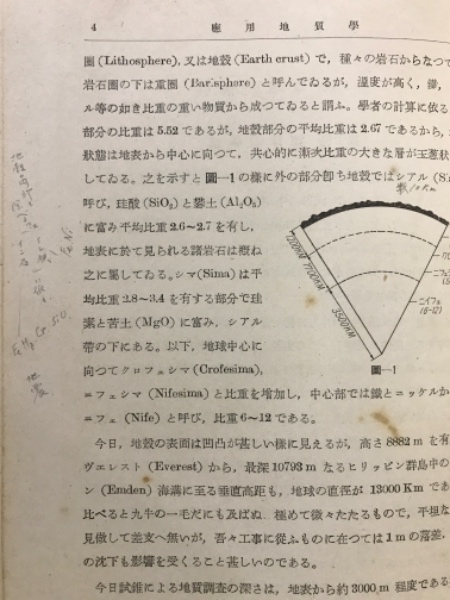 4
應用地質學
圈 (Lithosphere), 又は地殼 (Earth crust) で, 種々の岩石からなつて
岩石圈の下は重圈 (Barisphere) と呼んでゐるが, 溫度が高く,
ル等の如き比重の重い物質から成つてゐると謂ふ。學者の計算に依る
部分の比重は 5.52 であるが, 地殼部分の平均比重は 2.67 であるから,
狀態は地表から中心に向つて, 共心的に漸次比重の大きな層が玉葱狀
してゐる。之を示すと圖—1 の樣に外の部分卽ち地殼ではシアル (Si
呼び, 珪酸 (SiO₂) と礬土 (Al₂O₃)
に富み平均比重 2.6~2.7 を有し,
地表に於て見られる諸岩石は概ね
之に屬してゐる。シマ(Sima) は平
均比重 2.8~3.4 を有する部分で珪
素と苦土 (MgO) に富み, シアル
帶の下にある。以下, 地球中心に
向つてクロフェシマ (Crofesima),
ニフェシマ (Nifesima) と比重を增加し, 中心部では鐵とニッケルか
ニフェ (Nife) と呼び, 比重 6~12 である。
1200KM
1700KM
3500KM
ニイフェ
(6-12)
圖—1
今日, 地殼の表面は凹凸が甚しい樣に見えるが, 高さ 8882 m を有
ヴェレスト (Everest) から, 最深 10793 m なるヒリッピン群島中の
ン (Emden) 海溝に至る垂直高距も, 地球の直徑が 13000 Km であ
比べると九牛の一毛だにも及ばぬ 極めて微々たるもので, 平坦な
見做して差支へ無いが, 吾々工事に從ふものに在つては 1 m の落差,
の沈下も影響を受くること甚しいのである。
今日試錐による地質調査の深さは, 地表から約 3000 m 程度である